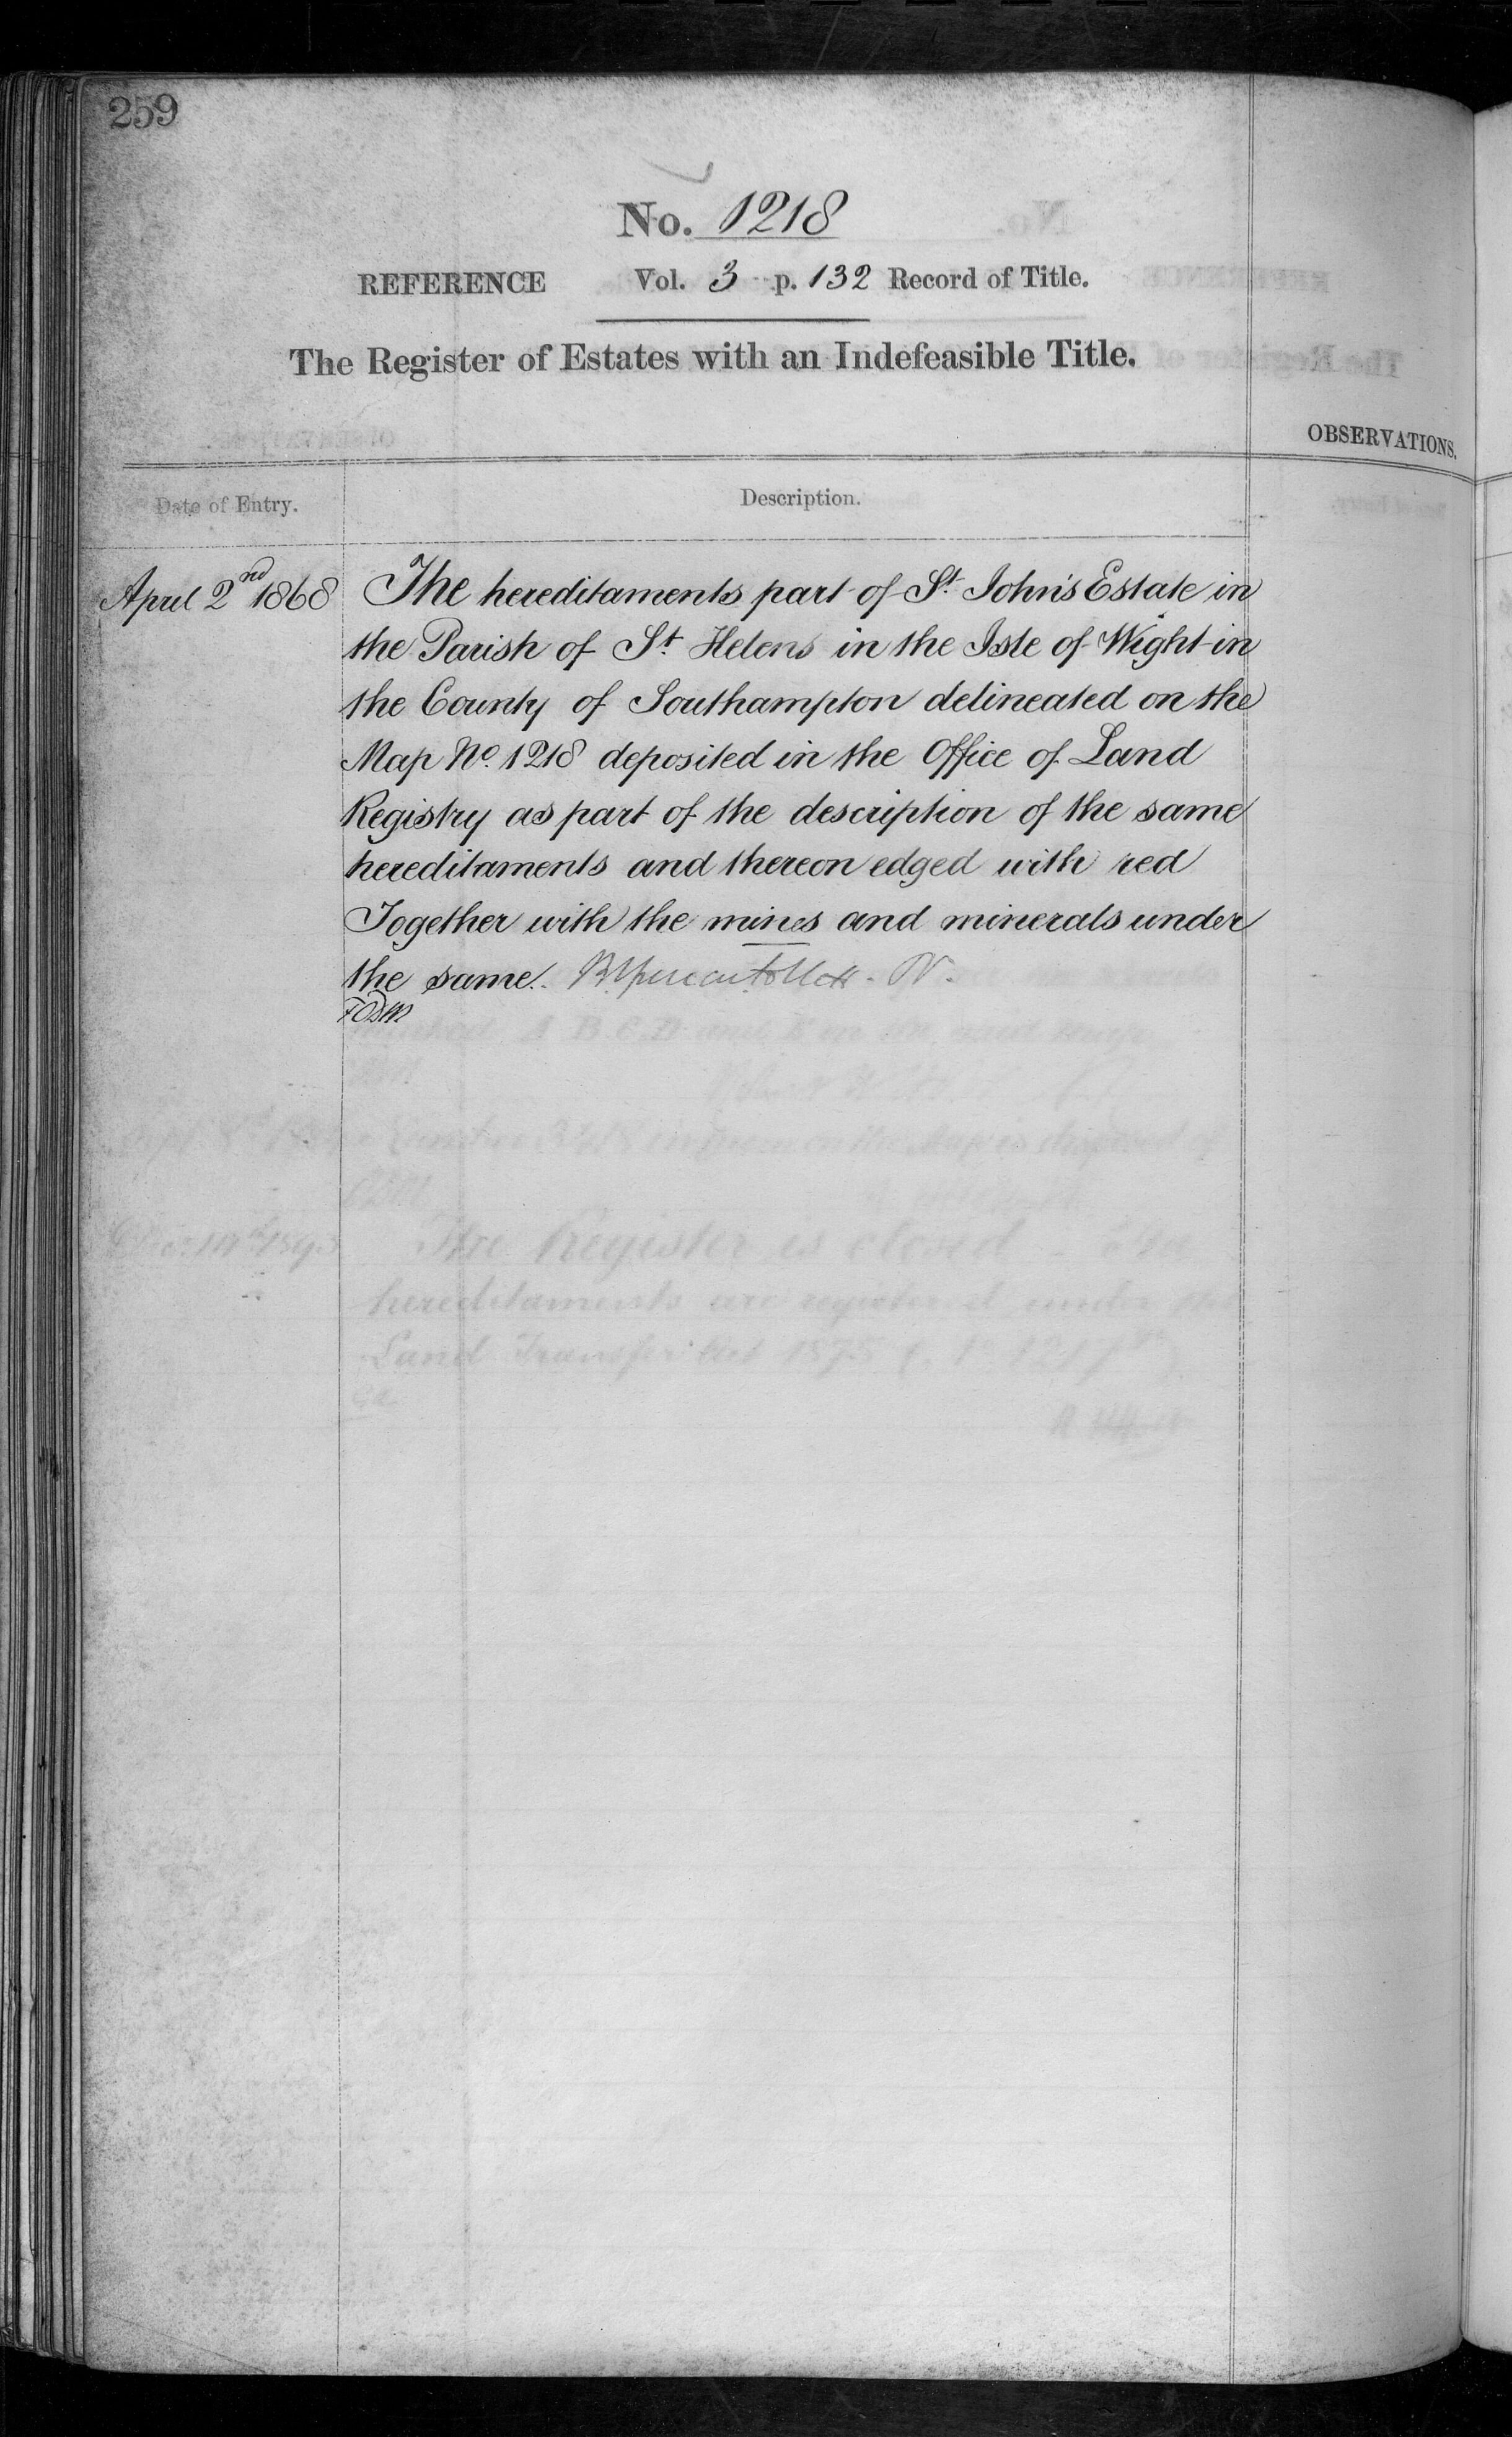 259
No. 1218
REFERENCE Vol. 3 p. 132 Record of Title.
The Register of Estates with an Indefeasible Title.
OBSERVATIONS.
Date of Entry. Description.
April 2nd 1868 The hereditaments part of St. John's Estate in
the Parish of St. Helens in the Isle of Wight in
the County of Southampton delineated on the
Map No. 1218 deposited in the Office of Land
Registry as part of the description of the same
hereditaments and thereon edged with red
Together with the mines and minerals under
the same.
The Register is closed
hereditaments are registered under the
Land Transfer Act 1875